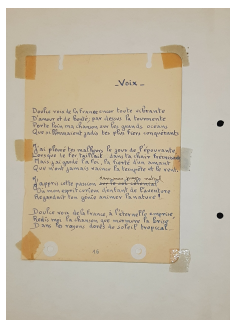 _Voix_
Douce voix de la France encor toute vibrante
D'amour et de fierté; par dessus la tourmente
Porte loin ma chanson sur les grands océans
Que sillonnaient jadis tes plus fiers conquérants
J'ai pleuré tes malheurs le jour de l'épouvante
Lorsque le fer taillait dans ta chair
Mais j'ai gardé la foi, la fierté d'un amant
Que n'ont jamais vaincu la tempête et le vent.
J'appris cette passion
Où mon esprit curieux d'enfant de l'aventure
Regardait ton génie animer la nature!
Douce voix de la France, à l'éternelle
Redis moi la chanson que murmure la brise
Dans les rayons dorés du soleil tropical